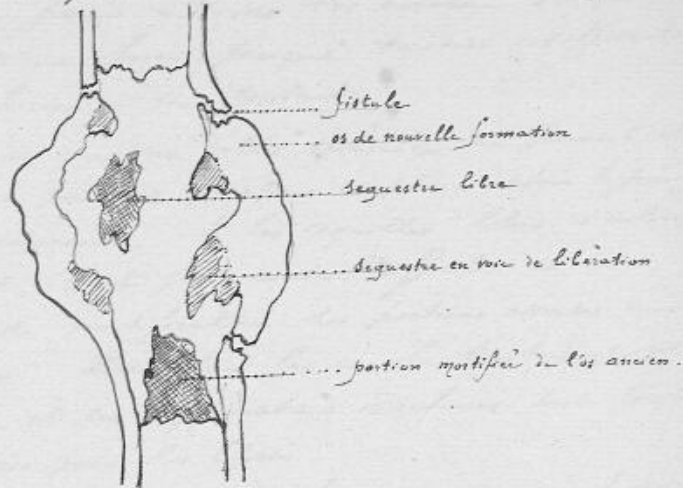 fistule
os de nouvelle formation
sequestre libre
sequestre en voie de libération
portion mortifiée de l'os ancien.